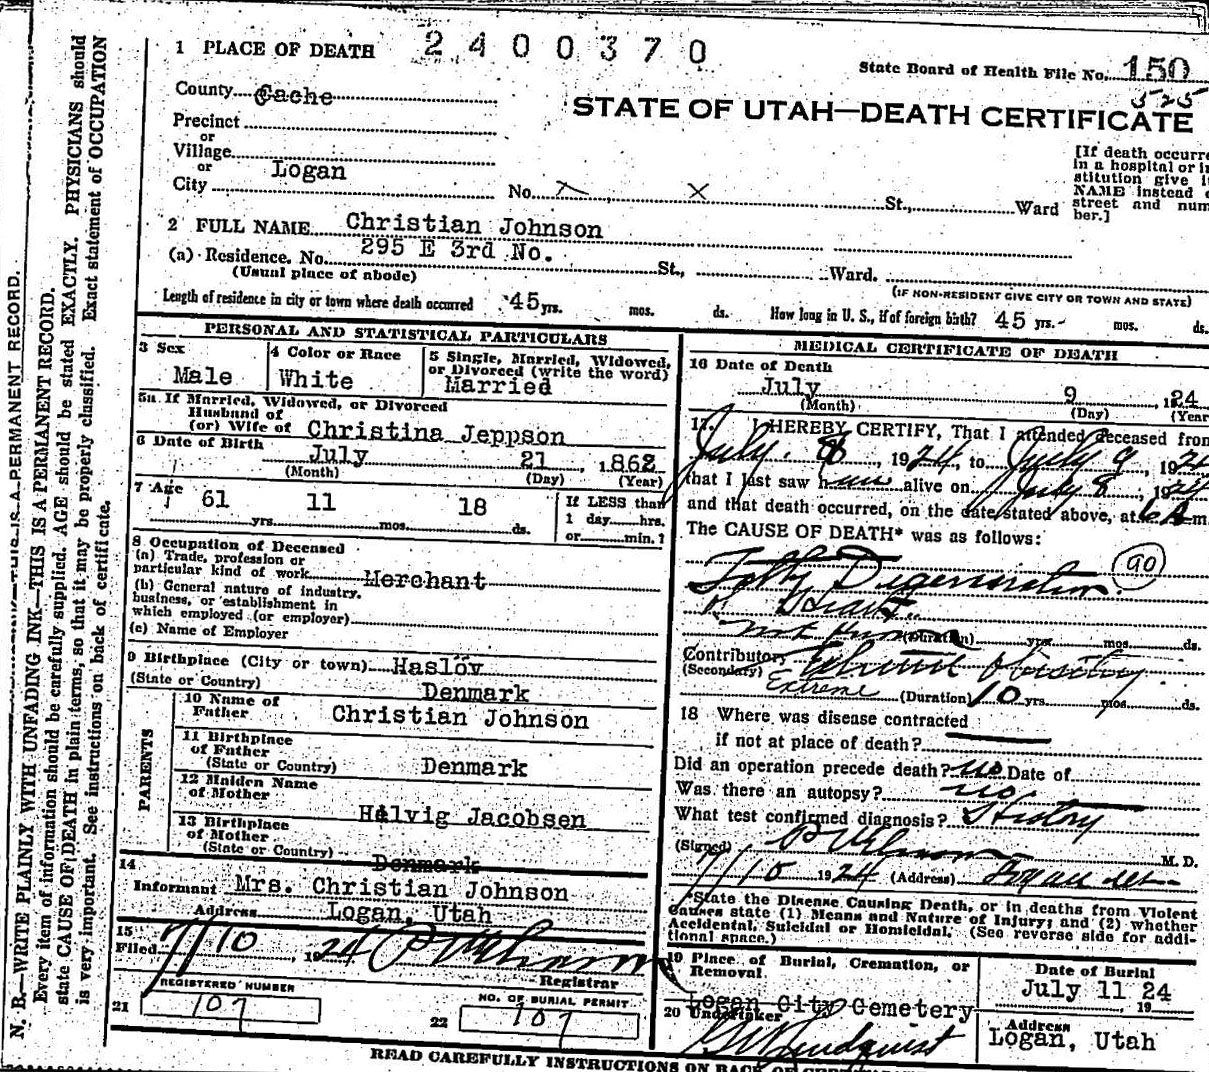 1 PLACE OF DEATH 2400370
State Board of Health File No. 150
525
County Cache
STATE OF UTAH—DEATH CERTIFICATE
Precinct
or
Village
or
City Logan
No. x x St., Ward
[If death occurre
in a hospital or in
stitution give it
NAME instead o
street and num
ber.]
2 FULL NAME Christian Johnson
(a) Residence. No. 295 E 3rd No. St., Ward.
(Usual place of abode)
(IF NON-RESIDENT GIVE CITY OR TOWN AND STATE)
Length of residence in city or town where death occurred 45 yrs. mos. ds. How long in U. S., if of foreign birth? 45 yrs. mos. ds.
PERSONAL AND STATISTICAL PARTICULARS
3 Sex
Male
4 Color or Race
White
5 Single, Married, Widowed,
or Divorced (write the word)
Married
5a If Married, Widowed, or Divorced
Husband of
(or) Wife of Christina Jeppson
6 Date of Birth
July 21, 1862
(Month) (Day) (Year)
7 Age 61 11 18
yrs. mos. ds.
If LESS than
1 day hrs.
or min.?
8 Occupation of Deceased
(a) Trade, profession or
particular kind of work Merchant
(b) General nature of industry,
business, or establishment in
which employed (or employer)
(c) Name of Employer
9 Birthplace (City or town) Haslöv
(State or Country) Denmark
PARENTS
10 Name of
Father Christian Johnson
11 Birthplace
of Father
(State or Country) Denmark
12 Maiden Name
of Mother
Helvig Jacobsen
13 Birthplace
of Mother
(State or Country)
Denmark
14
Informant Mrs. Christian Johnson
Address Logan, Utah
15
Filed 7/10, 1924
Registrar
REGISTERED NUMBER
21 107
NO. OF BURIAL PERMIT
22 107
MEDICAL CERTIFICATE OF DEATH
16 Date of Death
July 9, 1924
(Month) (Day) (Year
17. I HEREBY CERTIFY, That I attended deceased from
July 8, 1924, to July 9, 1924
that I last saw him alive on July 8, 1924
and that death occurred, on the date stated above, at 6 A m.
The CAUSE OF DEATH* was as follows:
90
Fatty Degeneration
of Heart
(Duration) yrs. mos. ds.
Contributory Obesity
(Secondary)
Extreme (Duration) 10 yrs. mos. ds.
18 Where was disease contracted
if not at place of death?
Did an operation precede death? no Date of
Was there an autopsy? no
What test confirmed diagnosis? History
(Signed) M. D.
7/10 1924 (Address) Logan Utah
*State the Disease Causing Death, or in deaths from Violent
Causes state (1) Means and Nature of Injury; and (2) whether
Accidental, Suicidal or Homicidal. (See reverse side for addi-
tional space.)
19 Place of Burial, Cremation, or
Removal.
Logan City Cemetery
Date of Burial
July 11 24
, 19
20 Undertaker
Lundquist
Address
Logan, Utah
READ CAREFULLY INSTRUCTIONS ON BACK OF
N. B.—WRITE PLAINLY WITH UNFADING INK—THIS IS A PERMANENT RECORD.
Every item of information should be carefully supplied. AGE should be stated EXACTLY. PHYSICIANS should
state CAUSE OF DEATH in plain terms, so that it may be properly classified. Exact statement of OCCUPATION
is very important. See instructions on back of certificate.